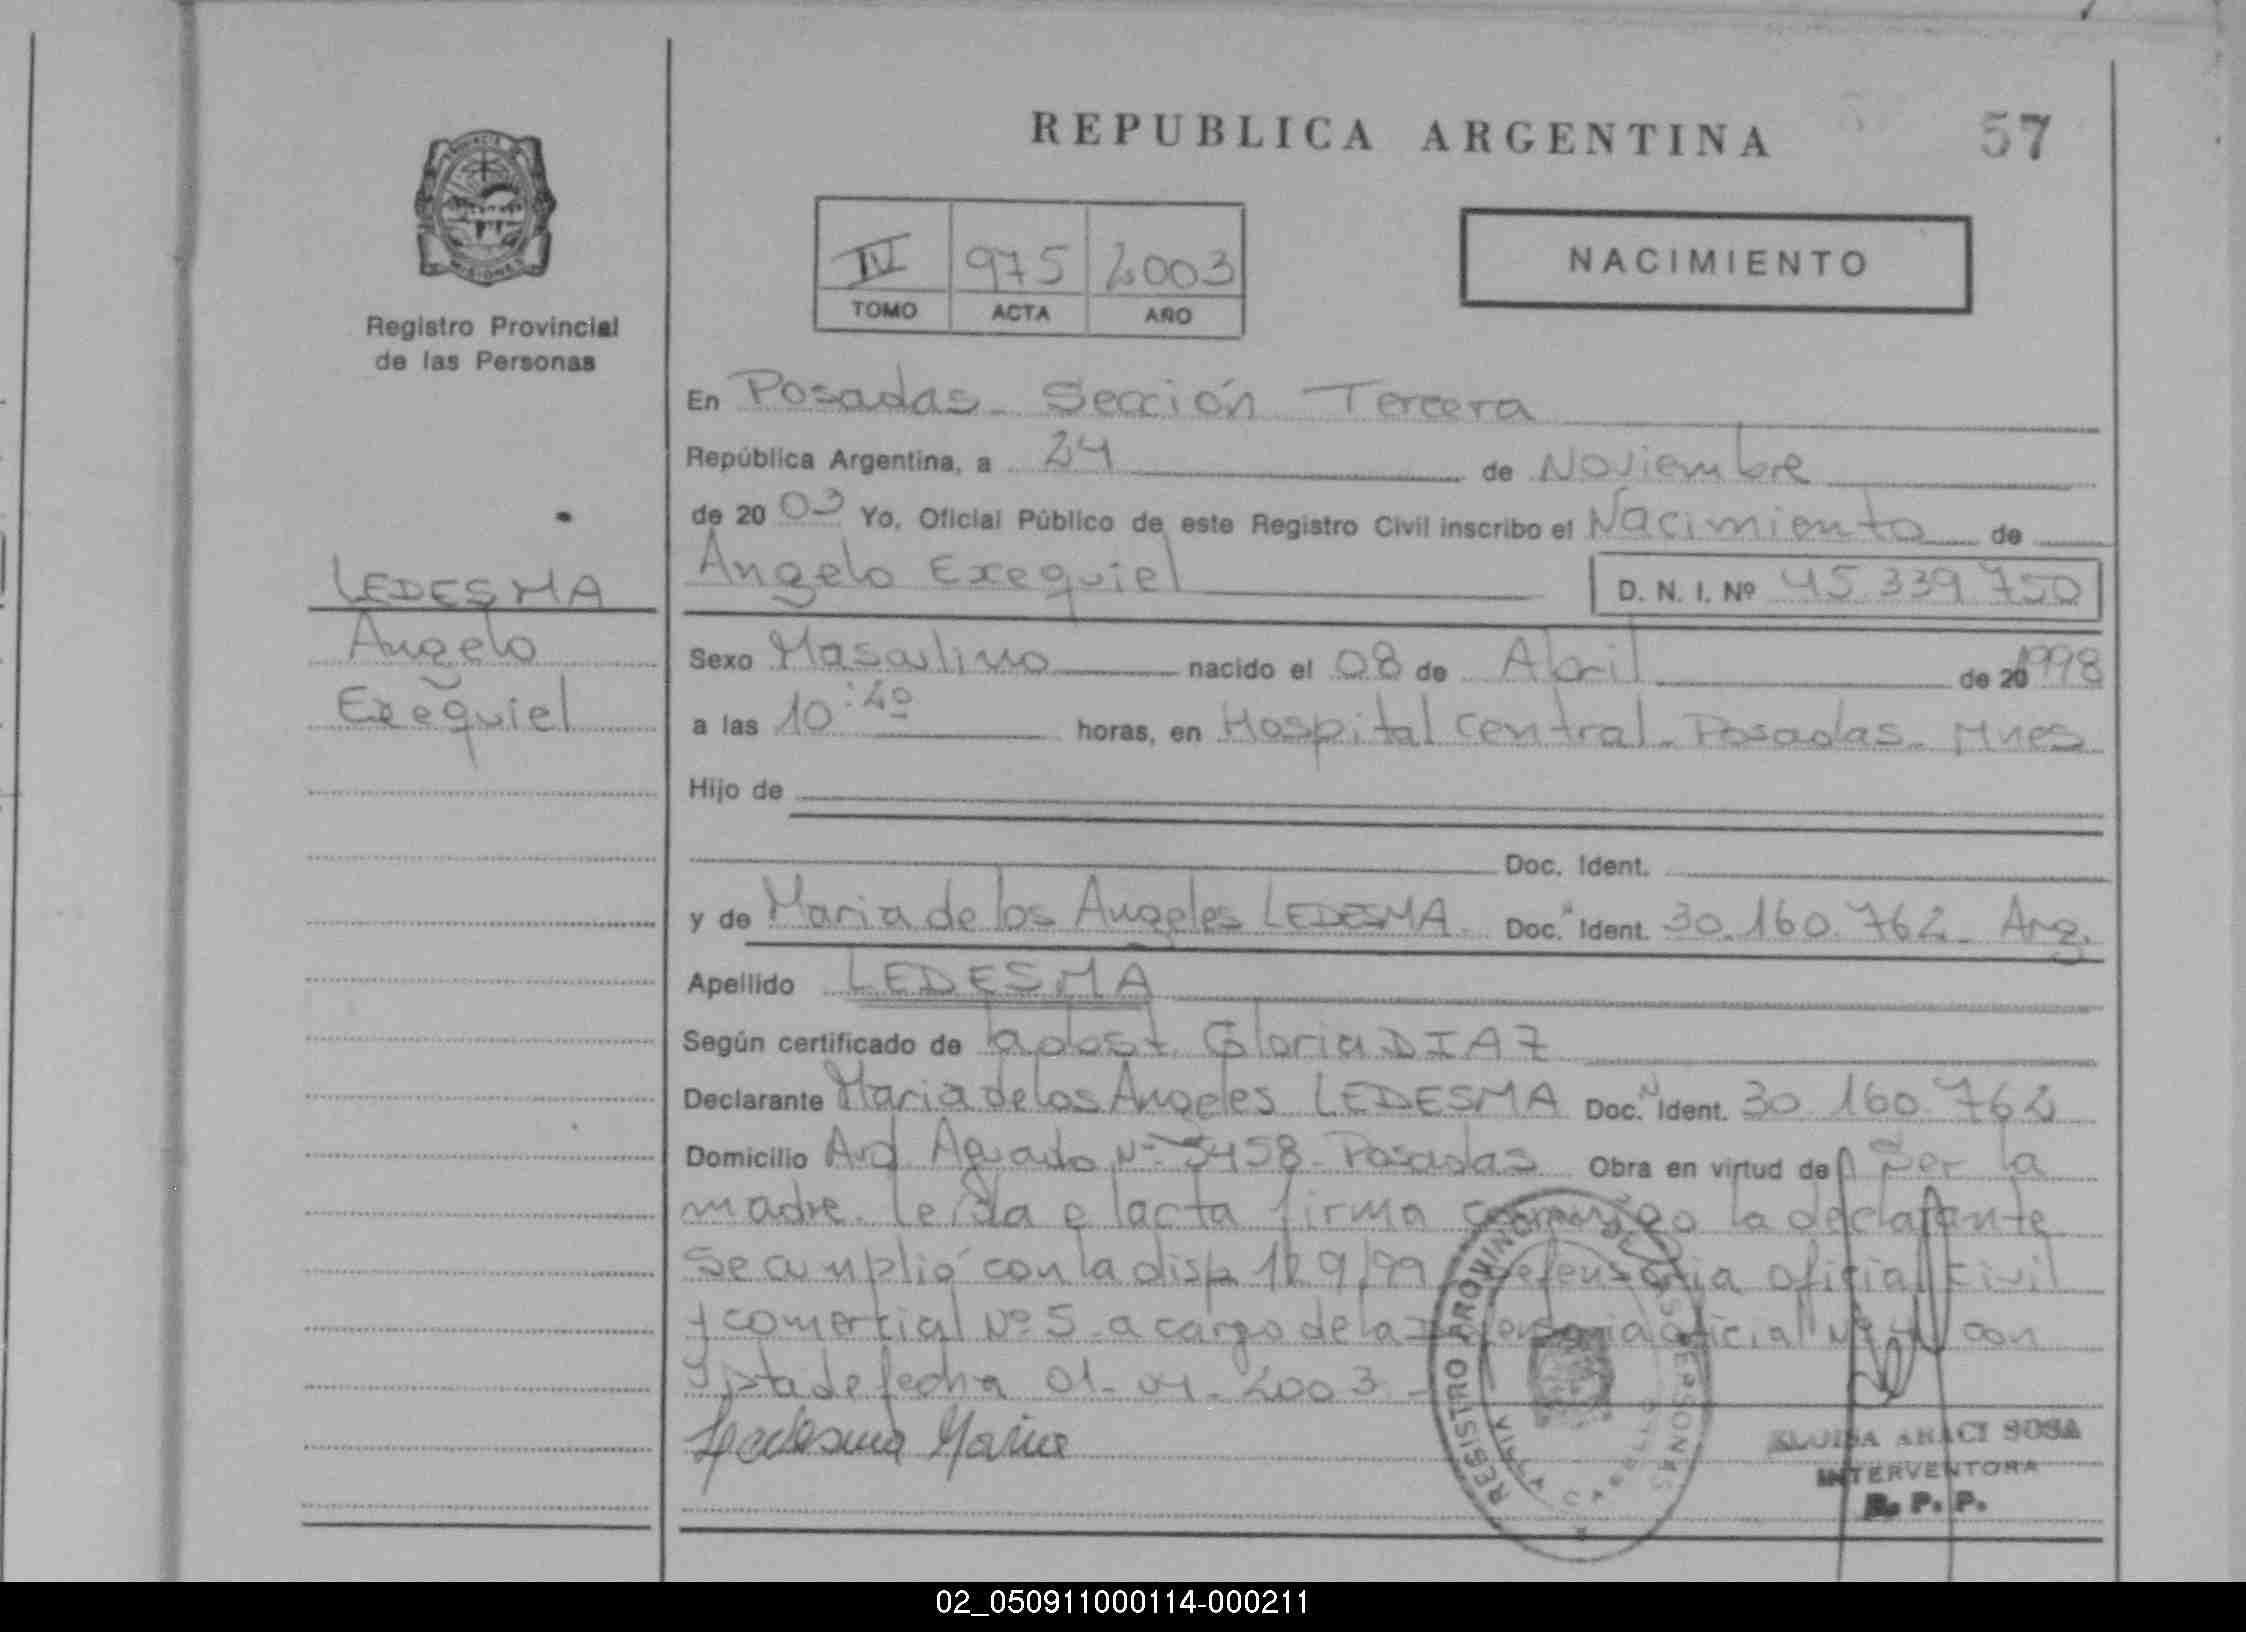 REPUBLICA ARGENTINA
57
IV 975 2003
TOMO ACTA AÑO
NACIMIENTO
PROVINCIA
MISIONES
Registro Provincial
de las Personas
LEDESMA
Angelo
Exequiel
En Posadas - Sección Tercera
República Argentina, a 24 de Noviembre
de 2003 Yo, Oficial Público de este Registro Civil inscribo el Nacimiento de
Angelo Exequiel
D. N. I. Nº 45.339.750
Sexo Masculino nacido el 08 de Abril de 20 1998
a las 10:40 horas, en Hospital Central - Posadas - Mnes
Hijo de
Doc. Ident.
y de Maria de los Angeles LEDESMA Doc. Ident. 30.160.762 - Arg.
Apellido LEDESMA
Según certificado de la obst. Gloria DIAZ
Declarante Maria de los Angeles LEDESMA Doc. Ident. 30.160.762
Domicilio Nº 5458 - Posadas Obra en virtud de Ser la
madre. leída el acta firma conmigo la declarante
Se cumplió con la disp 129/99 Defensoria oficial civil
y comercial Nº 5 - a cargo de la Defensoria oficial Nº 4 con
Vista de fecha 01-04-2003 -
Ledesma Maria
REGISTRO PROVINCIAL DE LAS PERSONAS
ARACI SOSA
INTERVENTORA
R. P. P.
02_050911000114-000211